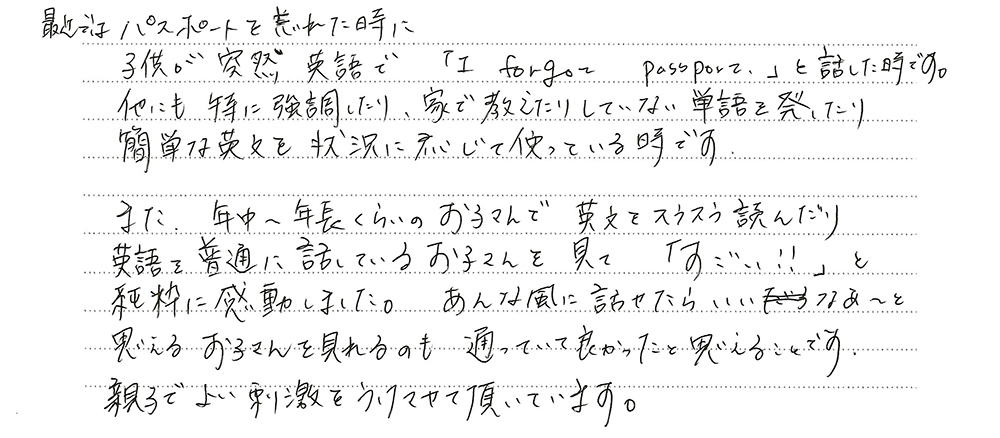 最近では パスポートを忘れた時に
子供が突然、英語で 「I forgot passport.」と話した時です。
他にも 特に強調したり、家で教えたりしていない単語を発したり
簡単な英文を 状況に応じて使っている時です.
また. 年中〜年長くらいのお子さんで 英文をスラスラ読んだり
英語を普通に話しているお子さんを見て 「すごい!!」と
純粋に感動しました。 あんな風に話せたらいいなぁ〜と
思えるお子さんを見れるのも 通っていて良かったと思えることです.
親子でよい刺激をうけさせて頂いています。